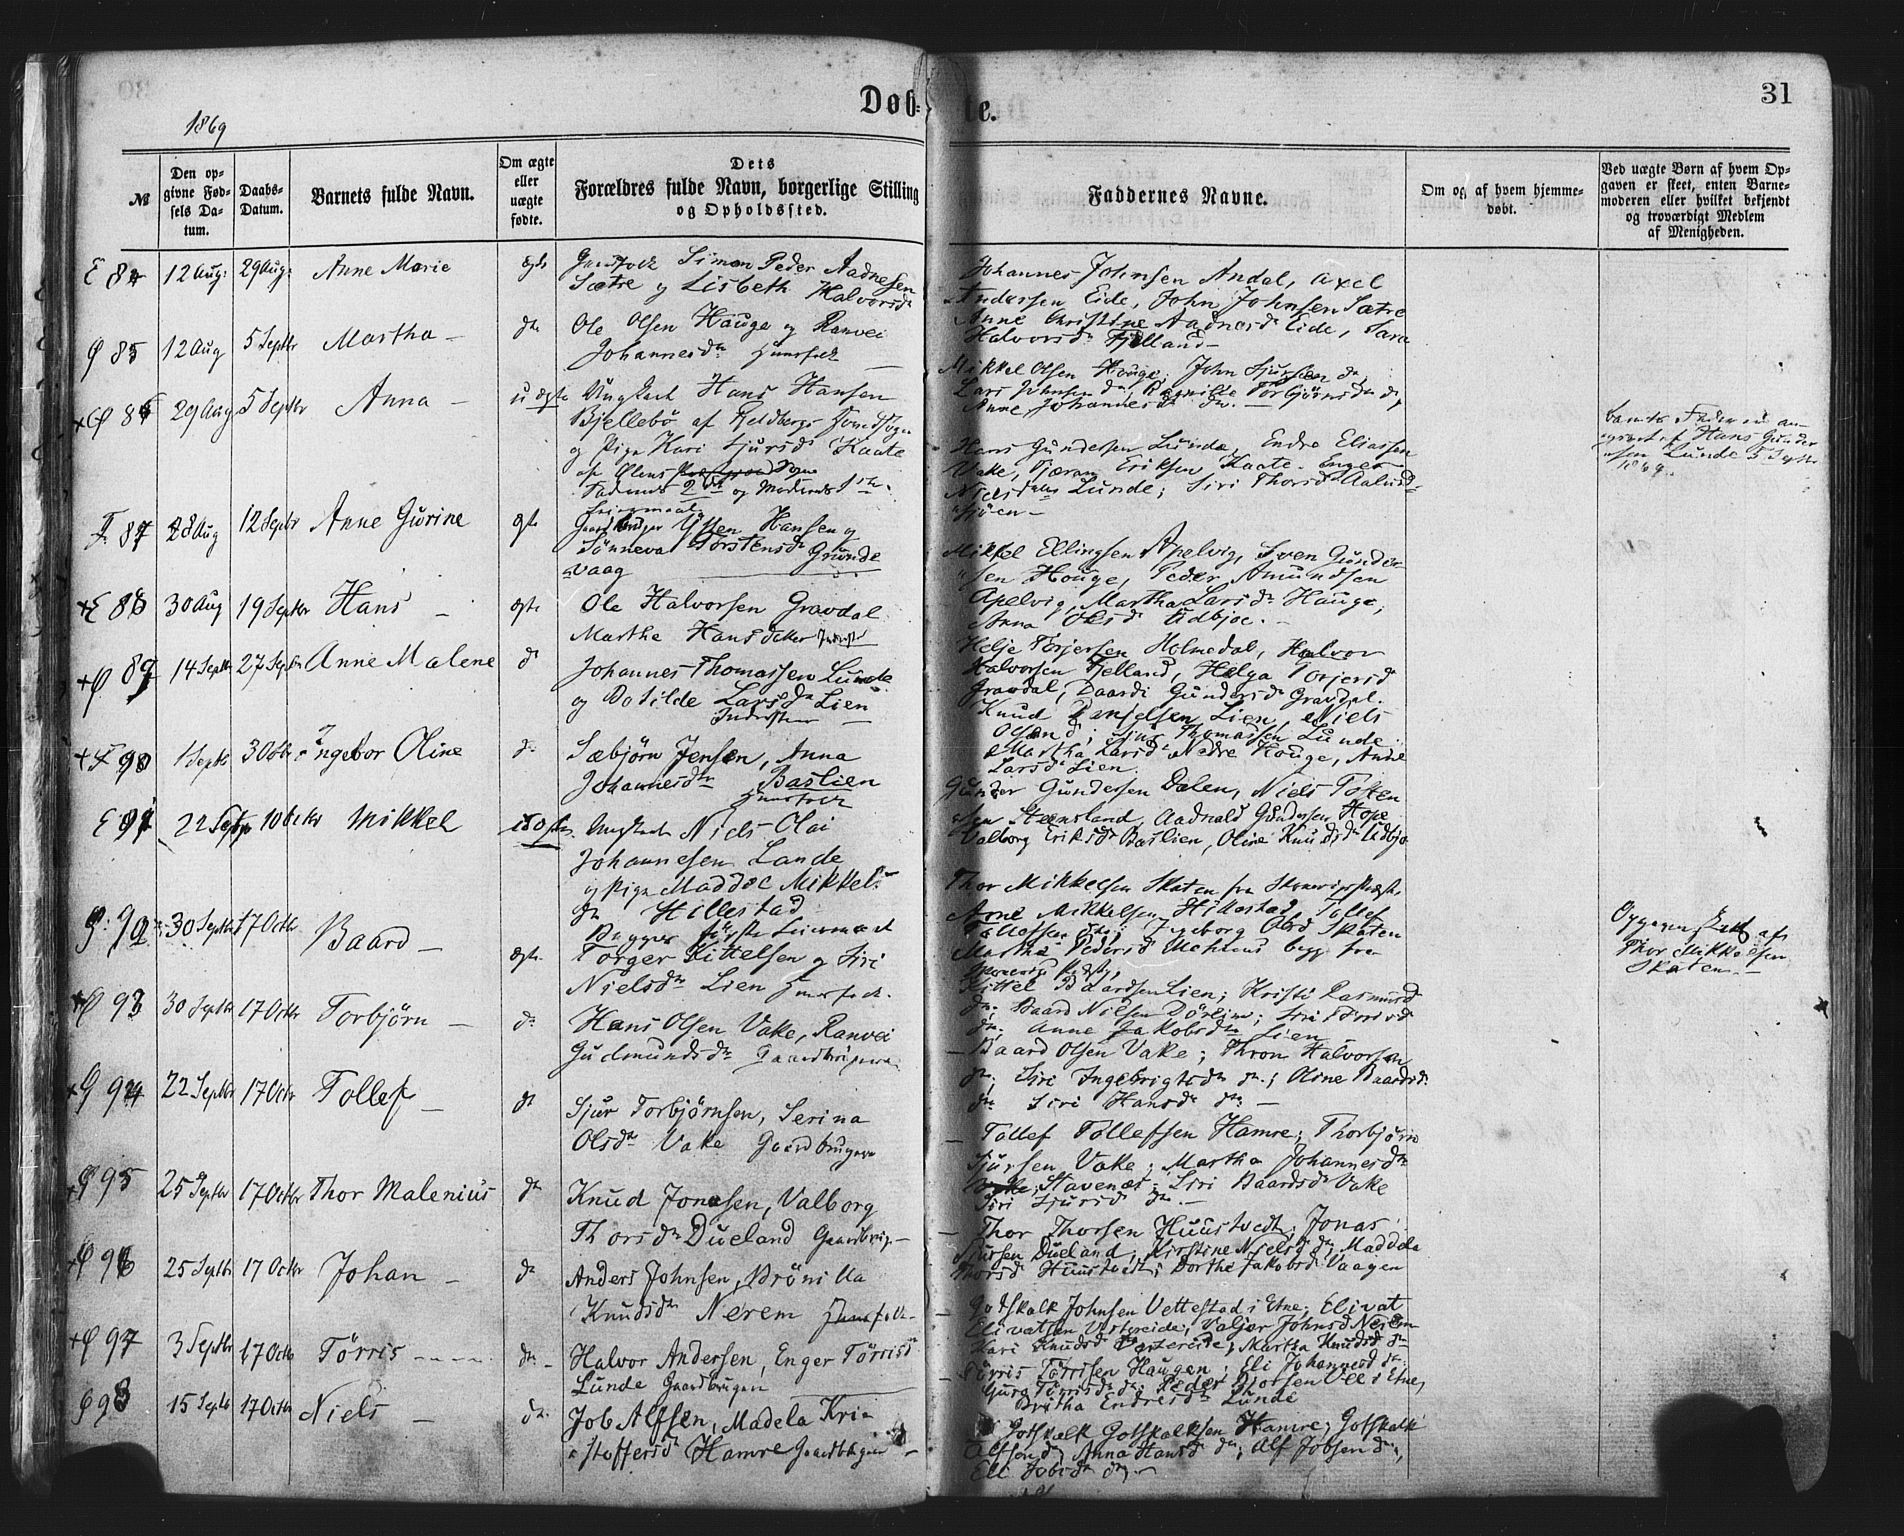 31
1869
Døbte.
№
Den opgivne Fødsels Datum.
Daabs-Datum.
Barnets fulde Navn.
Om ægte eller uægte fødte.
Dets Forældres fulde Navn, borgerlige Stilling og Opholdssted.
Faddernes Navne.
Om og af hvem hjemmedøbt.
Ved uægte Børn af hvem Opgaven er skeet, enten Barnemoderen eller hvilket bekjendt og troværdigt Medlem af Menigheden.
E 84 12 Aug: 29 Aug: Anne Marie ægte
Simon Peder Aadnesen
Sætre og Lisbeth Halvorsdr
Johannes Johnsen Andal, Axel
Andersen Eide, John Johnsen Sætre
Anne Christine Aadnesdr Eide, Sara
Halvorsdr Fjelland –
Ø 85 12 Aug 5 Septbr Martha – do
Ole Olsen Hauge og Ranvei
Johannesdr Huusfolk
Mikkel Olsen Houge; John Sjursen do
Lars Johnsen do; Torbjørnsdr do;
Anne Johannesdr do. –
+Ø 86 29 Aug 5 Septbr Anna – uægte
Ungkarl Hans Hansen
Bjellebö af
og Pige Kari Sjursdr Kaate
af Ølens Sogn
Faderens 2det og Moderens 1ste
Leiermaal
Hans Gundersen Lunde, Endre Eliassen
Vake, Eriksen Kaate. Enger
Nielsdatter Lunde; Siri Thorsdr
sjöen –
Hans Gunder
sen Lunde 5 Septbr
1869.
F. 87 28 Aug 12 Septbr Anne Gurine ægte
Gaardbruger Hansen og
Sönneva Torstensdr Grunde
vaag
Mikkel Ellingsen Apelvig, Sven Gunder
sen Houge, Peder Amundsen
Apelvig, Martha Larsdr Hauge,
Anna Olsdr Udbjoe. –
+E 88 30 Aug 19 Septbr Hans – ægte
Ole Halvorsen Gravdal
Martha Hansdatter
Helje Torjersen Holmedal, Halvor
Halvorsen Fjelland, Helga Torjersdr
Gravdal, Gundersdr Gravdal.
+Ø 89 14 Septbr 27 Septbr Anne Malene do
Johannes Thomassen Lunde
og Botilde Larsdr Lien
Inderster –
Knud Lien, Niels
Thomassen Lunde
Martha Larsdr Nedre Houge, Anne
Larsdr Lien
+F 90 1 Septbr 3 Octbr Ingebor Oline do
Sæbjörn Jensen, Anna
Johannesdr Baslien
Huusfolk
Gunder Gundersen Dalen, Niels Tosten
sen Steensland, Aadnald Gundersen Hope
Valborg Eriksdr Baslien, Oline Knudsdr Udbjo
E 91 22 Septbr 10 Octbr Mikkel uægte
Ungkarl Niels Olai
Johannesen Lande
og Pige Maddel Mikkels
dr Hillestad
Begges første Leiermaal
Thor Mikkelsen Skaten fra
Arne Mikkelsen Hillestad, Tollef
Tollefsen do; Ingeborg Olsdr Skaten
Martha Pedersdr begge fra
Opgaven skeet af
Thor Mikkelsen
Skaten –
Ø. 92 30 Septbr 17 Octbr Baard – ægte
Torger Kittelsen og Siri
Nielsdr Lien Huusfolk.
Kittel Baardsen Lien; Kristi Rasmusd
dr; Baard Nielsen; Siri
do; Anne Jakobsdr Lien
+Ø 93 30 Septbr 17 Octbr Torbjörn – do
Hans Olsen Vake, Ranvei
Gudmundsdr Gaardbrugere
– Baard Olsen Vake; Thron Halvorsen
do; Siri Ingebrigtsdr do.; Oline Baardsdr
do Siri Hansdr do –
+Ø 94 22 Septbr 17 Octbr Tollef – do
Sjur Torbjörnsen, Serina
Olsdr Vake Gaardbrugere
– Tollef Tollefsen Hamre; Thorbjörn
Sjursen Vake; Martha Johannesdr
Stavenæs; Siri Baardsdr Vake
Siri Sjursdr do –
+Ø 95 25 Septbr 17 Octbr Thor Malenius do
Knud Jonasen, Valborg
Thorsdr Dueland Gaardbrug –
– Thor Thorsen Huustvedt; Jonas
Sjursen Dueland; Kirstine Nielsdr do, Maddela
Thorsdr Huustvedt; Dorthe Jakobsdr Vaagen
+Ø 96 25 Septbr 17 Octbr Johan – do
Anders Johnsen, Brönilla
Knudsdr Nerem Huusfolk.
– Gotskalk Johnsen Vettestad i Etne; Elivat
Elivatsen Østereide; Johnsdr Nerem
Kari Knudsdr Østereide; Martha Knudsdr do
+Ø 97 3 Septbr 17 Octb Törris – do –
Halvor Andersen, Enger Törrisdr
Lunde Gaardbrugere
– Törris Törrisen Haugen; Eli Johannesdr do
Guro Törrisdr do; Peder i Etne,
Britha Endresdr Lunde
Ø 98 15 Septb 17 Octbr Niels – do.
Job Alfsen, Madela Kri-
stoffersdr Hamre Gaardbrugere –
Gotskalk Gotskalksen Hamre; Gotskalk
Alfsen do, Anna Hansdr do; Alf Jobsen do,
Eli Jobsdr do –